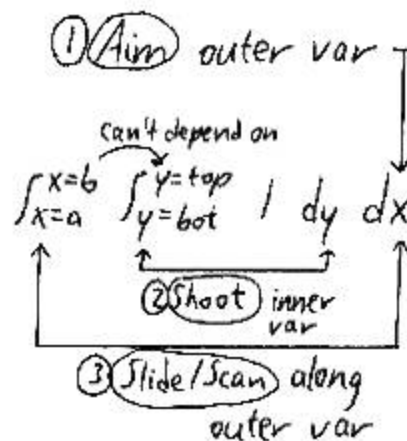 ① Aim outer var
can't depend on
∫ x=b x=a ∫ y=top y=bot 1 dy dx
② Shoot inner
var
③ Slide/Scan along
outer var